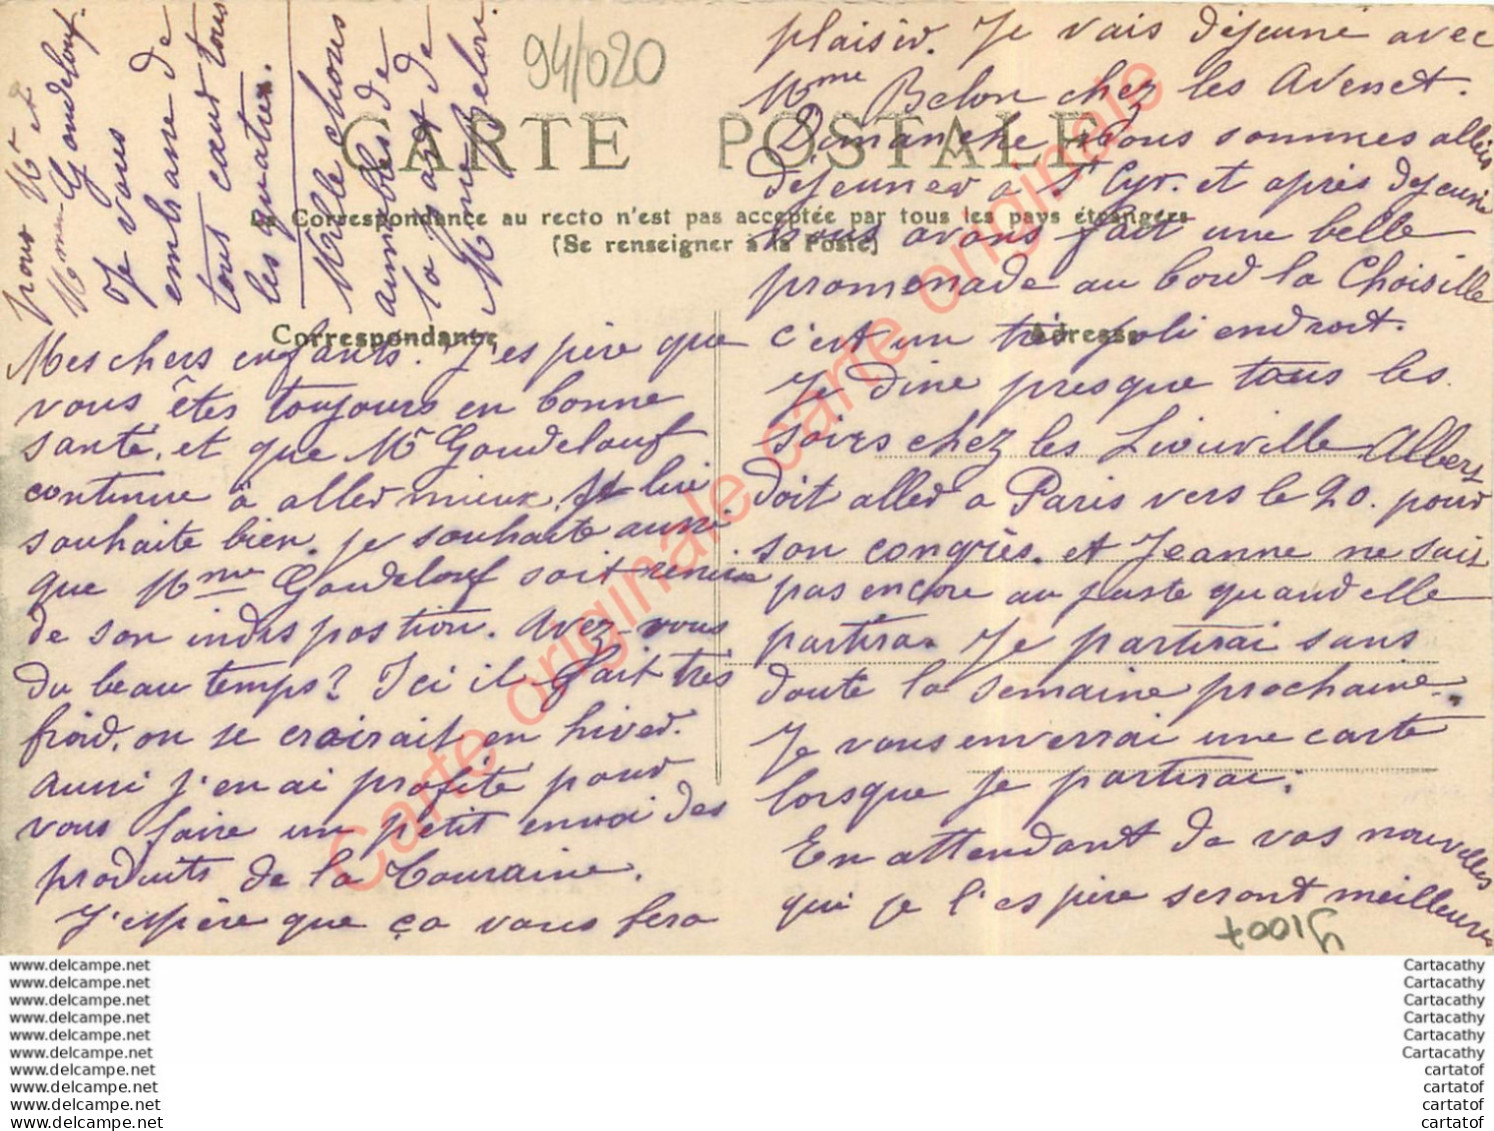 Mes chers enfants. J'espère que
vous êtes toujours en bonne
santé, et que Mr Goudelouf
continue à aller mieux, je lui
souhaite bien. je souhaite aussi
que Mme Goudelouf soit remise
de son indispostion. Avez-vous
du beau temps? Ici il fait très
froid, on se croirait en hiver.
Aussi j'en ai profité pour
vous faire un petit envoi des
produits de la Touraine.
J'espère que ça vous fera
plaisir. Je vais déjeuné avec
Mme Belon chez les Avenet.
Dimanche nous sommes allés
déjeuner à St Cyr. et après déjeuné
nous avons fait une belle
promenade au bord la Choisille
c'est un très joli endroit.
Je dine presque tous les
soirs chez les Liouville Albert
doit aller a Paris vers le 20. pour
son congrès. et Jeanne ne sait
pas encore au juste quand elle
partira. Je partirai sans
doute la semaine prochaine.
Je vous enverrai une carte
lorsque je partirai.
En attendant de vos nouvelles
qui je l'espère seront meilleures
pour Mr et
Mme Goudelouf.
Je vous
embrasse de
tout cœur tous
les quatre.
Mille choses
aimables de
la part de
Mme Belon.
94/020
CARTE POSTALE
La Correspondance au recto n'est pas acceptée par tous les pays étrangers
(Se renseigner à la Poste)
Correspondance
Adresse
91007
Carte originale carte originale
www.delcampe.net
www.delcampe.net
www.delcampe.net
www.delcampe.net
www.delcampe.net
www.delcampe.net
www.delcampe.net
www.delcampe.net
www.delcampe.net
www.delcampe.net
Cartacathy
Cartacathy
Cartacathy
Cartacathy
Cartacathy
Cartacathy
cartatof
cartatof
cartatof
cartatof